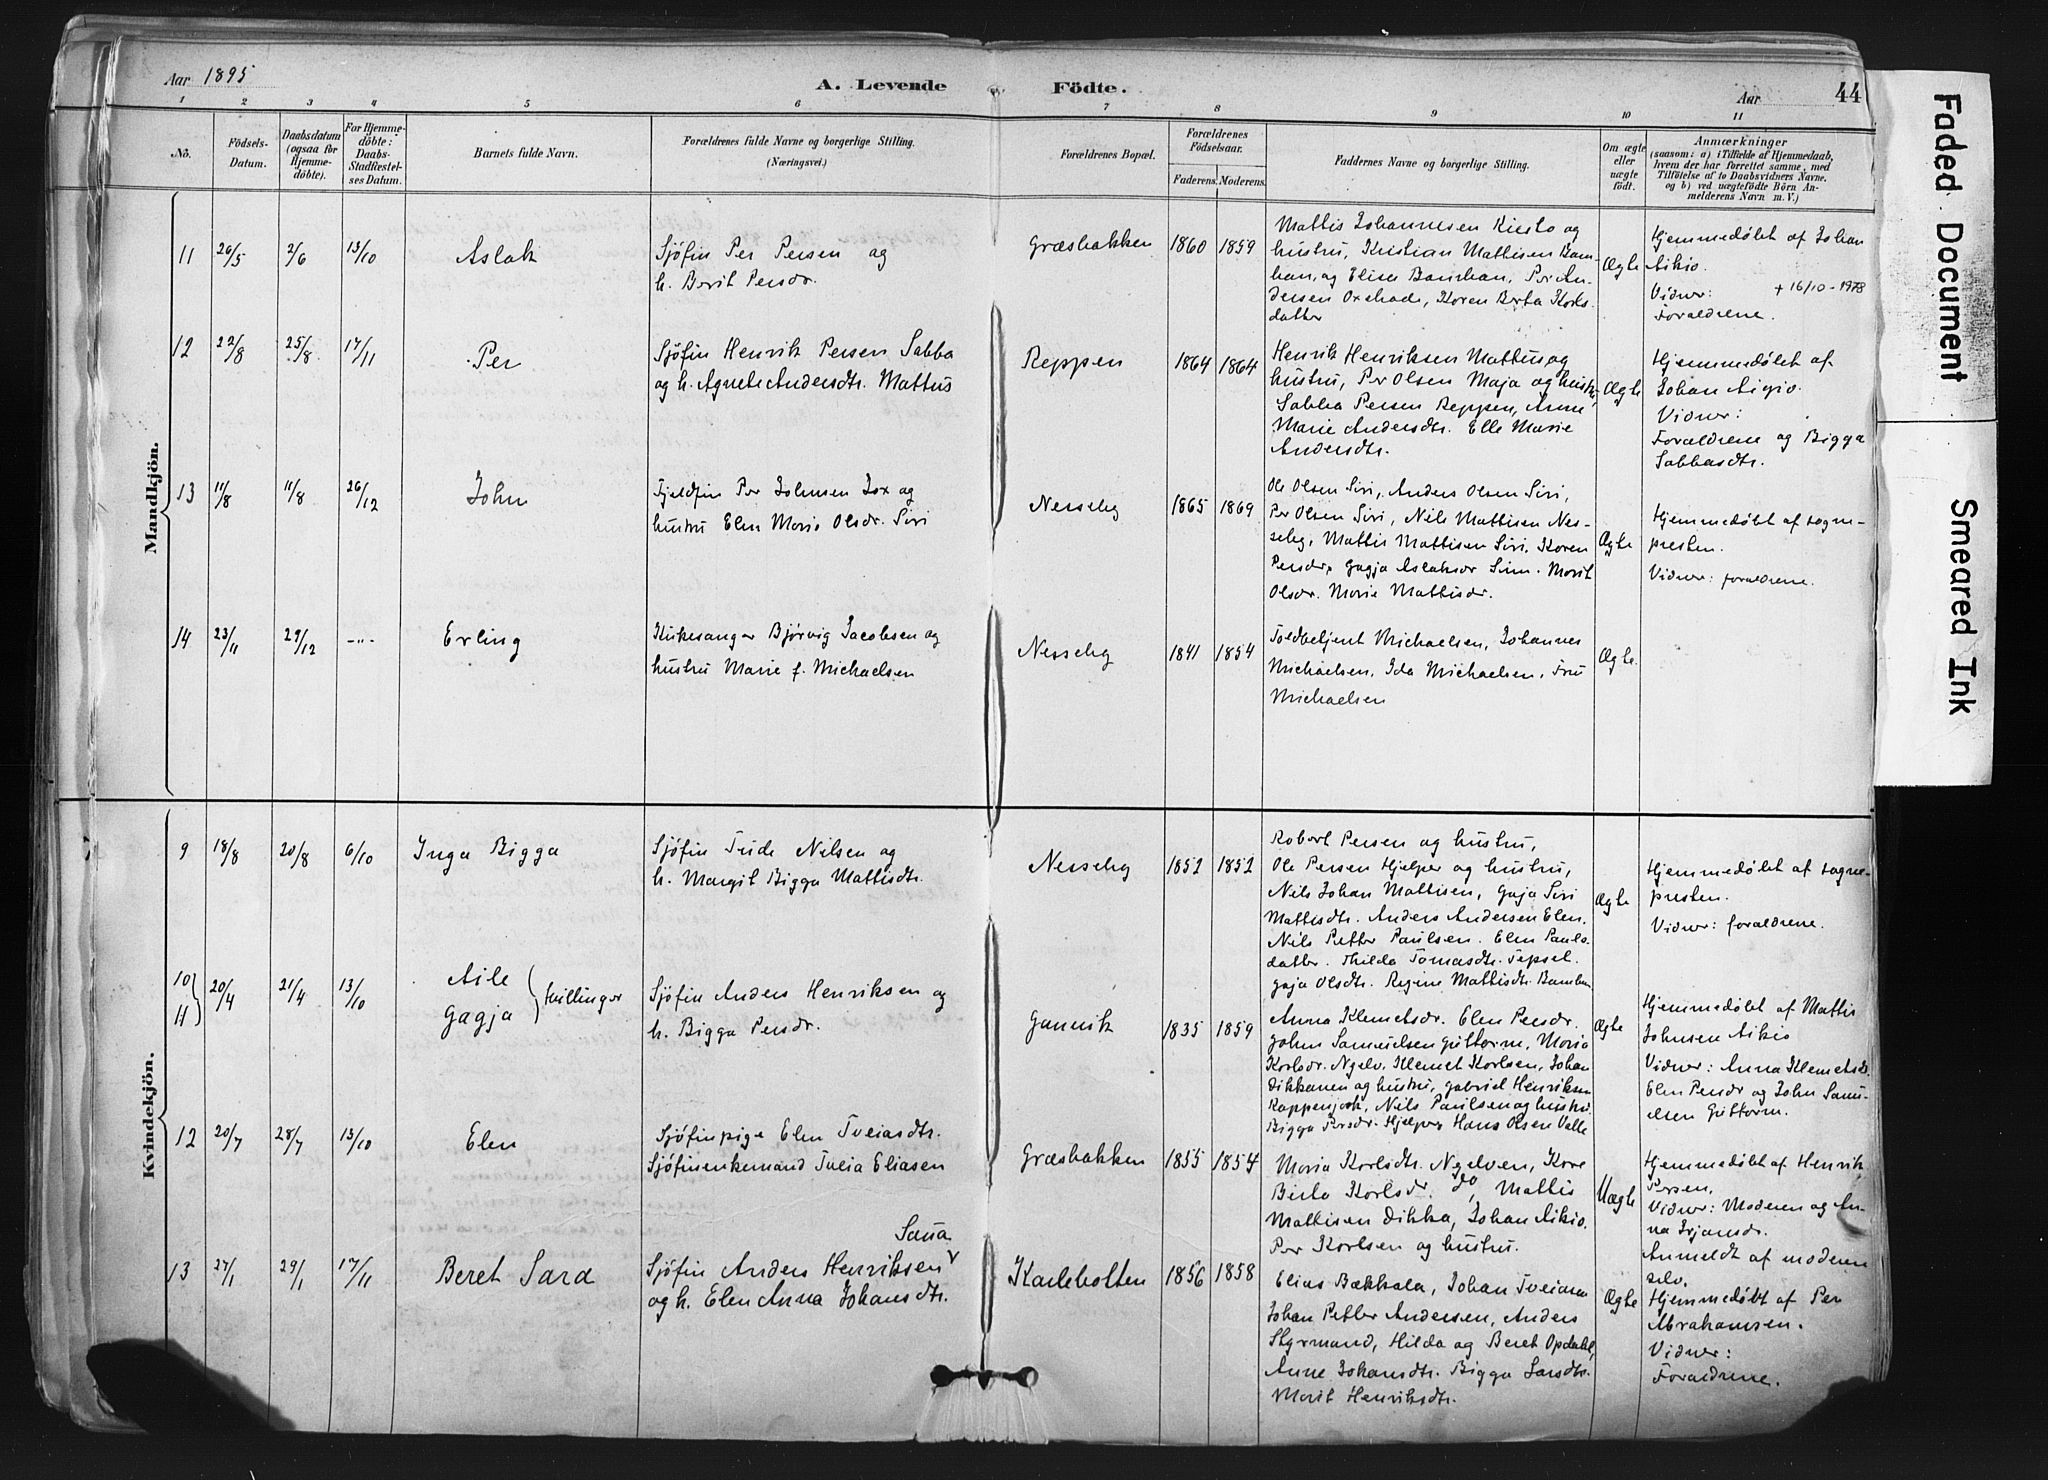 Aar 1895
A. Levende Födte.
Aar 44
1 2 3 4 5 6 7 8 9 10 11
No.
Födsels-Datum.
Daabsdatum (ogsaa for Hjemme-döbte).
For Hjemme-döbte: Daabs-Stadfæstel-ses Datum.
Barnets fulde Navn.
Forældrenes fulde Navne og borgerlige Stilling.
(Næringsvei.)
Forældrenes Bopæl.
Forældrenes Födselsaar.
Faderens. Moderens.
Faddernes Navne og borgerlige Stilling.
Om ægte eller uægte födt.
Anmærkninger
(saasom: a) i Tilfælde af Hjemmedaab,
hvem der har forrettet samme, med
Tilföielse af to Daabsvidners Navne.
og b) ved uægtefödte Börn An-
melderens Navn m. V.)
Mandkjön.
11 26/5 2/6 13/10 Aslak
Sjöfin Per Persen og
h. Berit Persdr.
Græsbakken 1860 1859
Mattis Johannesen Riesto og
hustru, Kristian Mattisen Bam-
han, og Elisa Bamhan, Per An-
dersen Oxehade, Karen Berta Karls-
datter
Ægte
Hjemmedøbt af Johan
Aikio.
Vidner: + 16/10 - 1978
Forældrene.
12 22/8 25/8 17/11 Per
Sjöfin Henrik Persen Sabba
og h. Agnete Andersdtr. Mattus
Reppen 1864 1864
Henrik Henriksen Mattus og
hustru, Per Olsen Maja og hustru
Sabba Persen Reppen, Anne
Marie Andersdtr. Elle Marie
Andersdtr.
Ægte
Hjemmedøbt af
Johan Aigio.
Vidner:
Forældrene og Bigga
Sabbasdtr.
13 11/8 11/8 26/12 John
Fjeldfin Per Johnsen Jox og
hustru Elen Maria Olsdr. Siri
Nesseby 1865 1869
Ole Olsen Siri, Anders Olsen Siri,
Per Olsen Siri, Nils Mattisen Nes-
seby, Mattis Mattisen Siri, Karen
Persdr, Gagja Aslaksdr Sim. Marit
Olsdr. Marie Mattisdr.
Ægte
Hjemmedøbt af sogne-
presten.
Vidner: forældrene.
14 23/11 29/12 -"- Erling
Kirkesanger Bjørvig Jacobsen og
hustru Marie f. Michaelsen
Nesseby 1841 1854
Toldbetjent Michaelsen, Johannes
Michaelsen, Ida Michaelsen, Fru
Michaelsen
Ægte.
Kvindekjön.
9 18/8 20/8 6/10 Inga Bigga
Sjöfin Trude Nilsen og
h. Margit Bigga Mattisdtr.
Nesseby 1852 1852
Robert Persen og hustru,
Ole Persen Hjelper og hustru,
Nils Johan Mattisen, Gaja Siri
Mattisdtr. Anders Andersen Elen,
Nils Petter Paulsen. Elen Pauls-
datter. Hilda Tomasdtr. Tepsel.
Gaja Olsdtr. Regine Mattisdtr. Bamhan
Ægte
Hjemmedøbt af sogne-
presten.
Vidner: forældrene.
10 11 20/4 21/4 13/10 Aile
Gagja tvillinger
Sjöfin Anders Henriksen og
h. Bigga Persdr.
Gannik 1835 1859
Anna Klemetsdr. Elen Persdr.
John Samuelsen Guttorm, Maria
Karlsdr. Nyelv, Klemet Karlsen, Johan
Dikkanen og hustru, Gabriel Henriksen
Rappenjock, Nils Paulsen og hustru.
Bigga Persdr. Hjelper, Hans Olsen Valle
Ægte
Hjemmedøbt af Mattis
Johnsen Aikio
Vidner: Anna Klemetsdr.
Elen Persdr og John Samu-
elsen Guttorm.
12 20/7 28/7 13/10 Elen
Sjöfinpige Elen Tveiasdtr.
Sjöfinenkemand Tveia Eliasen
Græsbakken 1855 1854
Maria Karlsdtr. Nyelven, Kare
Birta Karlsdr. do, Mattis
Mattisen Dikka, Johan Aikio,
Per Karlsen og hustru.
Uægte
Hjemmedøbt af Henrik
Persen.
Vidner: Moderen og An-
na Irjansdr.
Anmeldt af moderen
selv.
13 27/1 29/1 17/11 Beret Sara
Saua
Sjöfin Anders Henriksen
og h. Elen Anna Johansdtr.
Karlebotten 1856 1858
Elias Bækkala, Johan Tveiasen
Johan Petter Andersen, Anders
Styrmand, Hilda og Beret Opdahl,
Anne Johansdtr. Bigga Larsdtr.
Marit Henriksdtr.
Ægte
Hjemmedøbt af Per
Abrahamsen.
Vidner:
Forældrene.
Faded Document
Smeared Ink